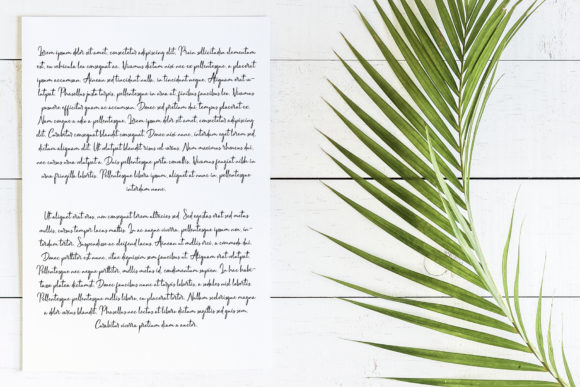 Lorem ipsum dolor sit amet, consectetur adipiscing elit. Proin sollicitudin elementum
est, eu vehicula leo consequat ac. Vivamus dictum nisi nec ex pellentesque, a placerat
ipsum accumsan. Aenean sed tincidunt nulla, in tincidunt neque. Aliquam erat vo-
lutpat. Phasellus justo turpis, pellentesque in urna at, finibus faucibus leo. Vivamus
posuere efficitur quam ac accumsan. Donec sed pretium dui, tempus placerat ex.
Nam congue a odio a pellentesque. Lorem ipsum dolor sit amet, consectetur adipiscing
elit. Curabitur consequat blandit consequat. Donec nisi nunc, interdum eget lorem sed,
dictum aliquam elit. Ut volutpat blandit risus vel varius. Nam maximus rhoncus dui,
nec cursus urna volutpat a. Duis pellentesque porta convallis. Vivamus feugiat nibh in
urna fringilla lobortis. Pellentesque libero ipsum, aliquet at nunc in, pellentesque
interdum nunc.
Ut aliquet erat eros, non consequat lorem ultricies sed. Sed egestas erat sed metus
mollis, cursus tempor lacus mattis. In ac neque viverra, pellentesque ipsum non, in-
terdum tortor. Suspendisse ac eleifend lacus. Aenean at mollis orci, a commodo dui.
Donec porttitor est nunc, vitae dignissim sem faucibus ut. Aliquam erat volutpat.
Pellentesque nec augue porttitor, mollis metus id, condimentum sapien. In hac habi-
tasse platea dictumst. Donec faucibus nunc at turpis lobortis, a sodales nisl lobortis.
Pellentesque pellentesque mollis libero, eu placerat tortor. Nullam scelerisque magna
a dolor varius blandit. Phasellus nec lectus et libero dictum sagittis sed quis sem.
Curabitur viverra pretium diam a auctor.